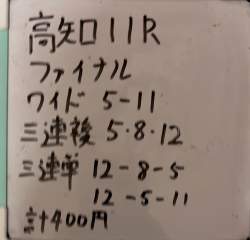 高知11R
ファイナル
ワイド 5-11
三連複 5・8・12
三連単 12-8-5
12-5-11
計400円